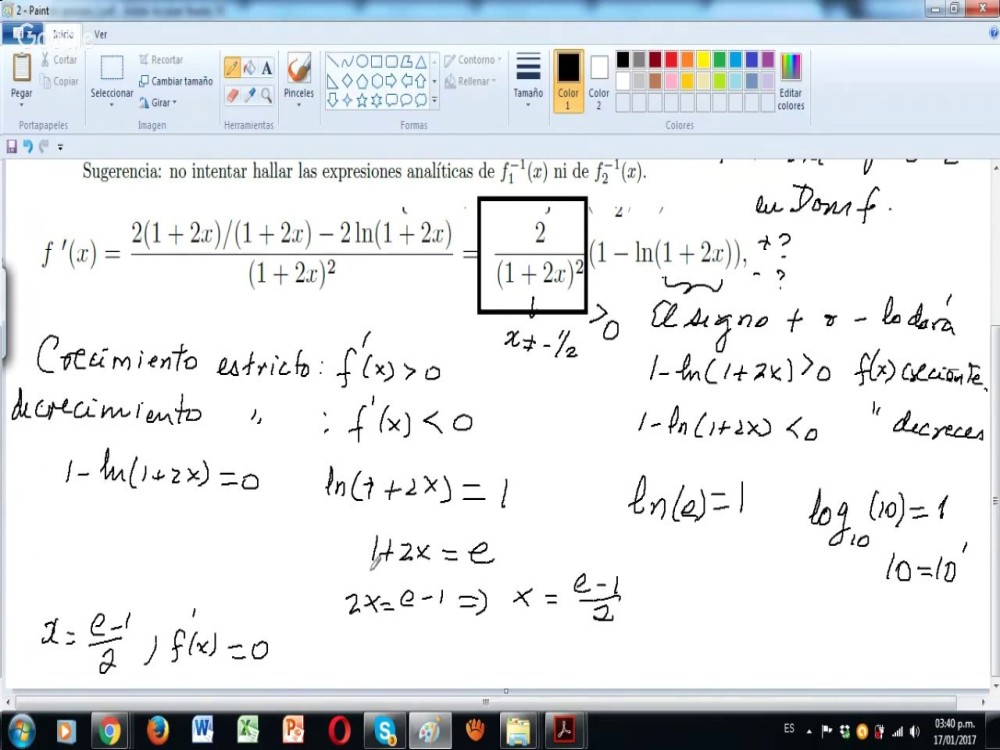 2 - Paint
Inicio Ver
Pegar
Cortar
Copiar
Portapapeles
Seleccionar
Recortar
Cambiar tamaño
Girar
Imagen
A
Herramientas
Pinceles
Contorno
Rellenar
Formas
Tamaño
Color 1
Color 2
Editar colores
Colores
Sugerencia: no intentar hallar las expresiones analíticas de f₁⁻¹(x) ni de f₂⁻¹(x).
en Dom f.
f ′(x) = 2(1 + 2x)/(1 + 2x) − 2 ln(1 + 2x) / (1 + 2x)² = 2 / (1 + 2x)² (1 − ln(1 + 2x)), + ?
- ?
x ≠ -1/2 > 0
El signo + o - lo dará
Crecimiento estricto : f'(x) > 0
1 - ln(1+2x) > 0 f(x) creciente.
decrecimiento " : f'(x) < 0
1 - ln(1+2x) < 0 " decreces
1 - ln(1+2x) = 0
ln(1+2x) = 1
ln(e) = 1
log₁₀(10) = 1
1+2x = e
10 = 10¹
2x = e-1 => x = e-1/2
x = e-1/2 , f'(x) = 0
ES
03:40 p.m.
17/01/2017